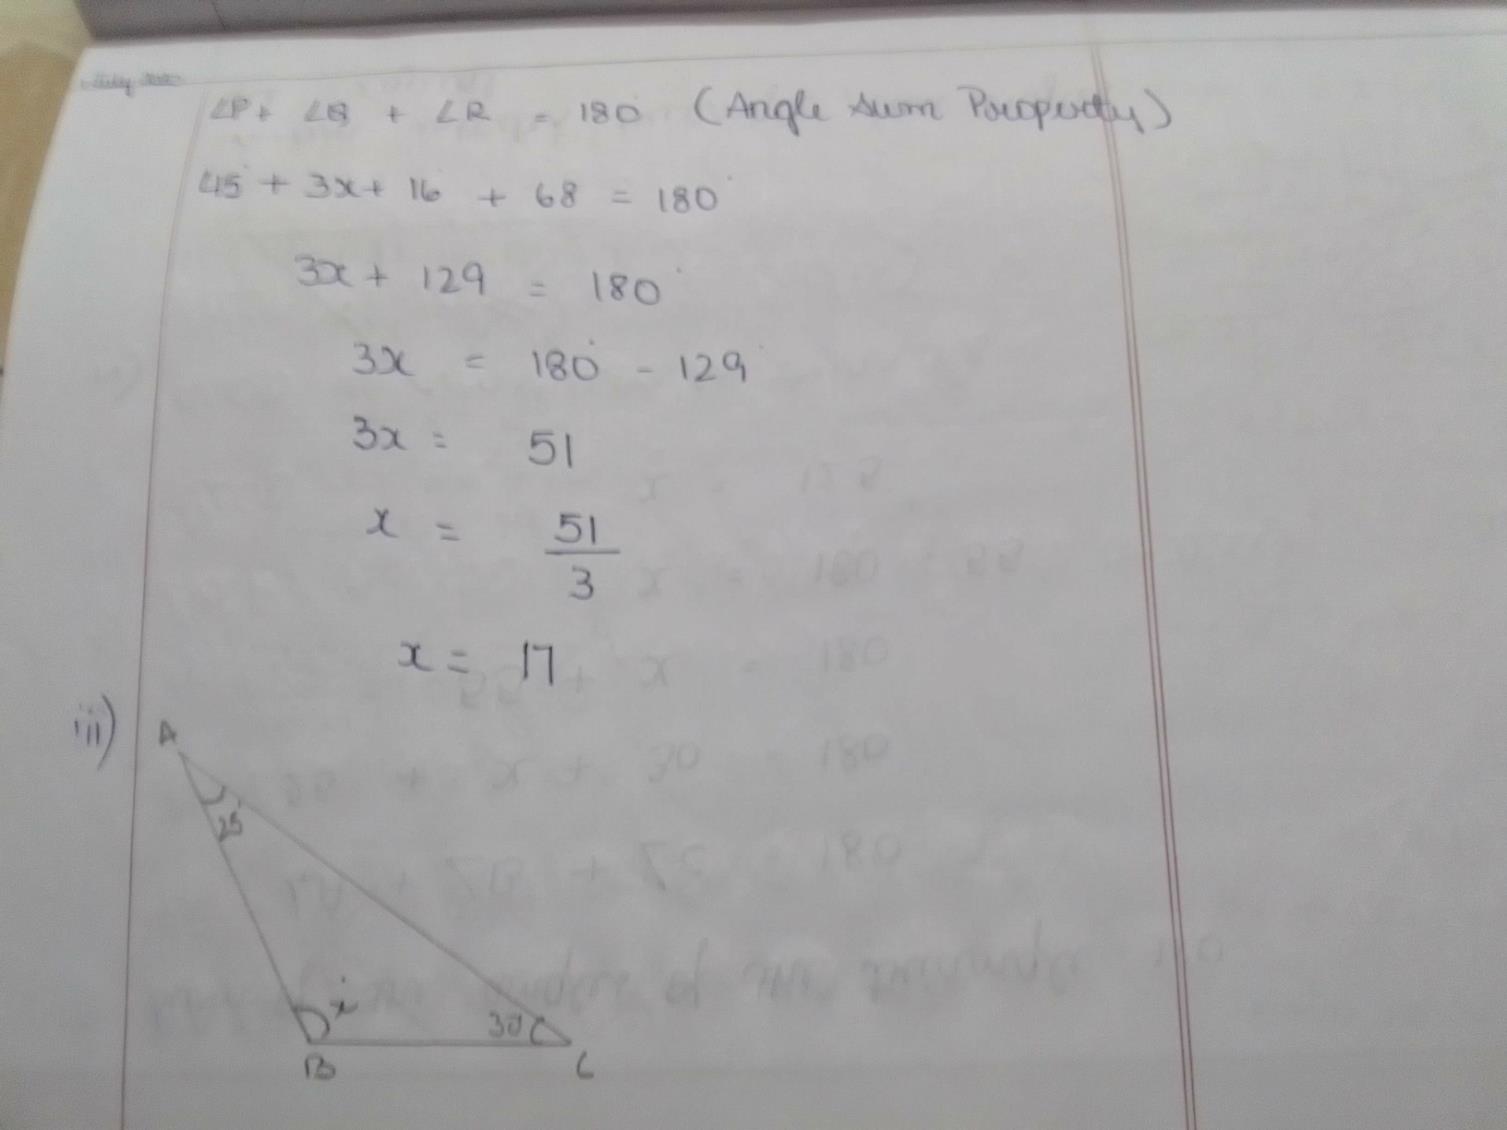 ∠P + ∠Q + ∠R = 180° (Angle sum Property)
45° + 3x + 16 + 68 = 180°
3x + 129 = 180°
3x = 180° - 129°
3x = 51
x = 51/3
x = 17
iii)
A
25°
x°
30°
B
C